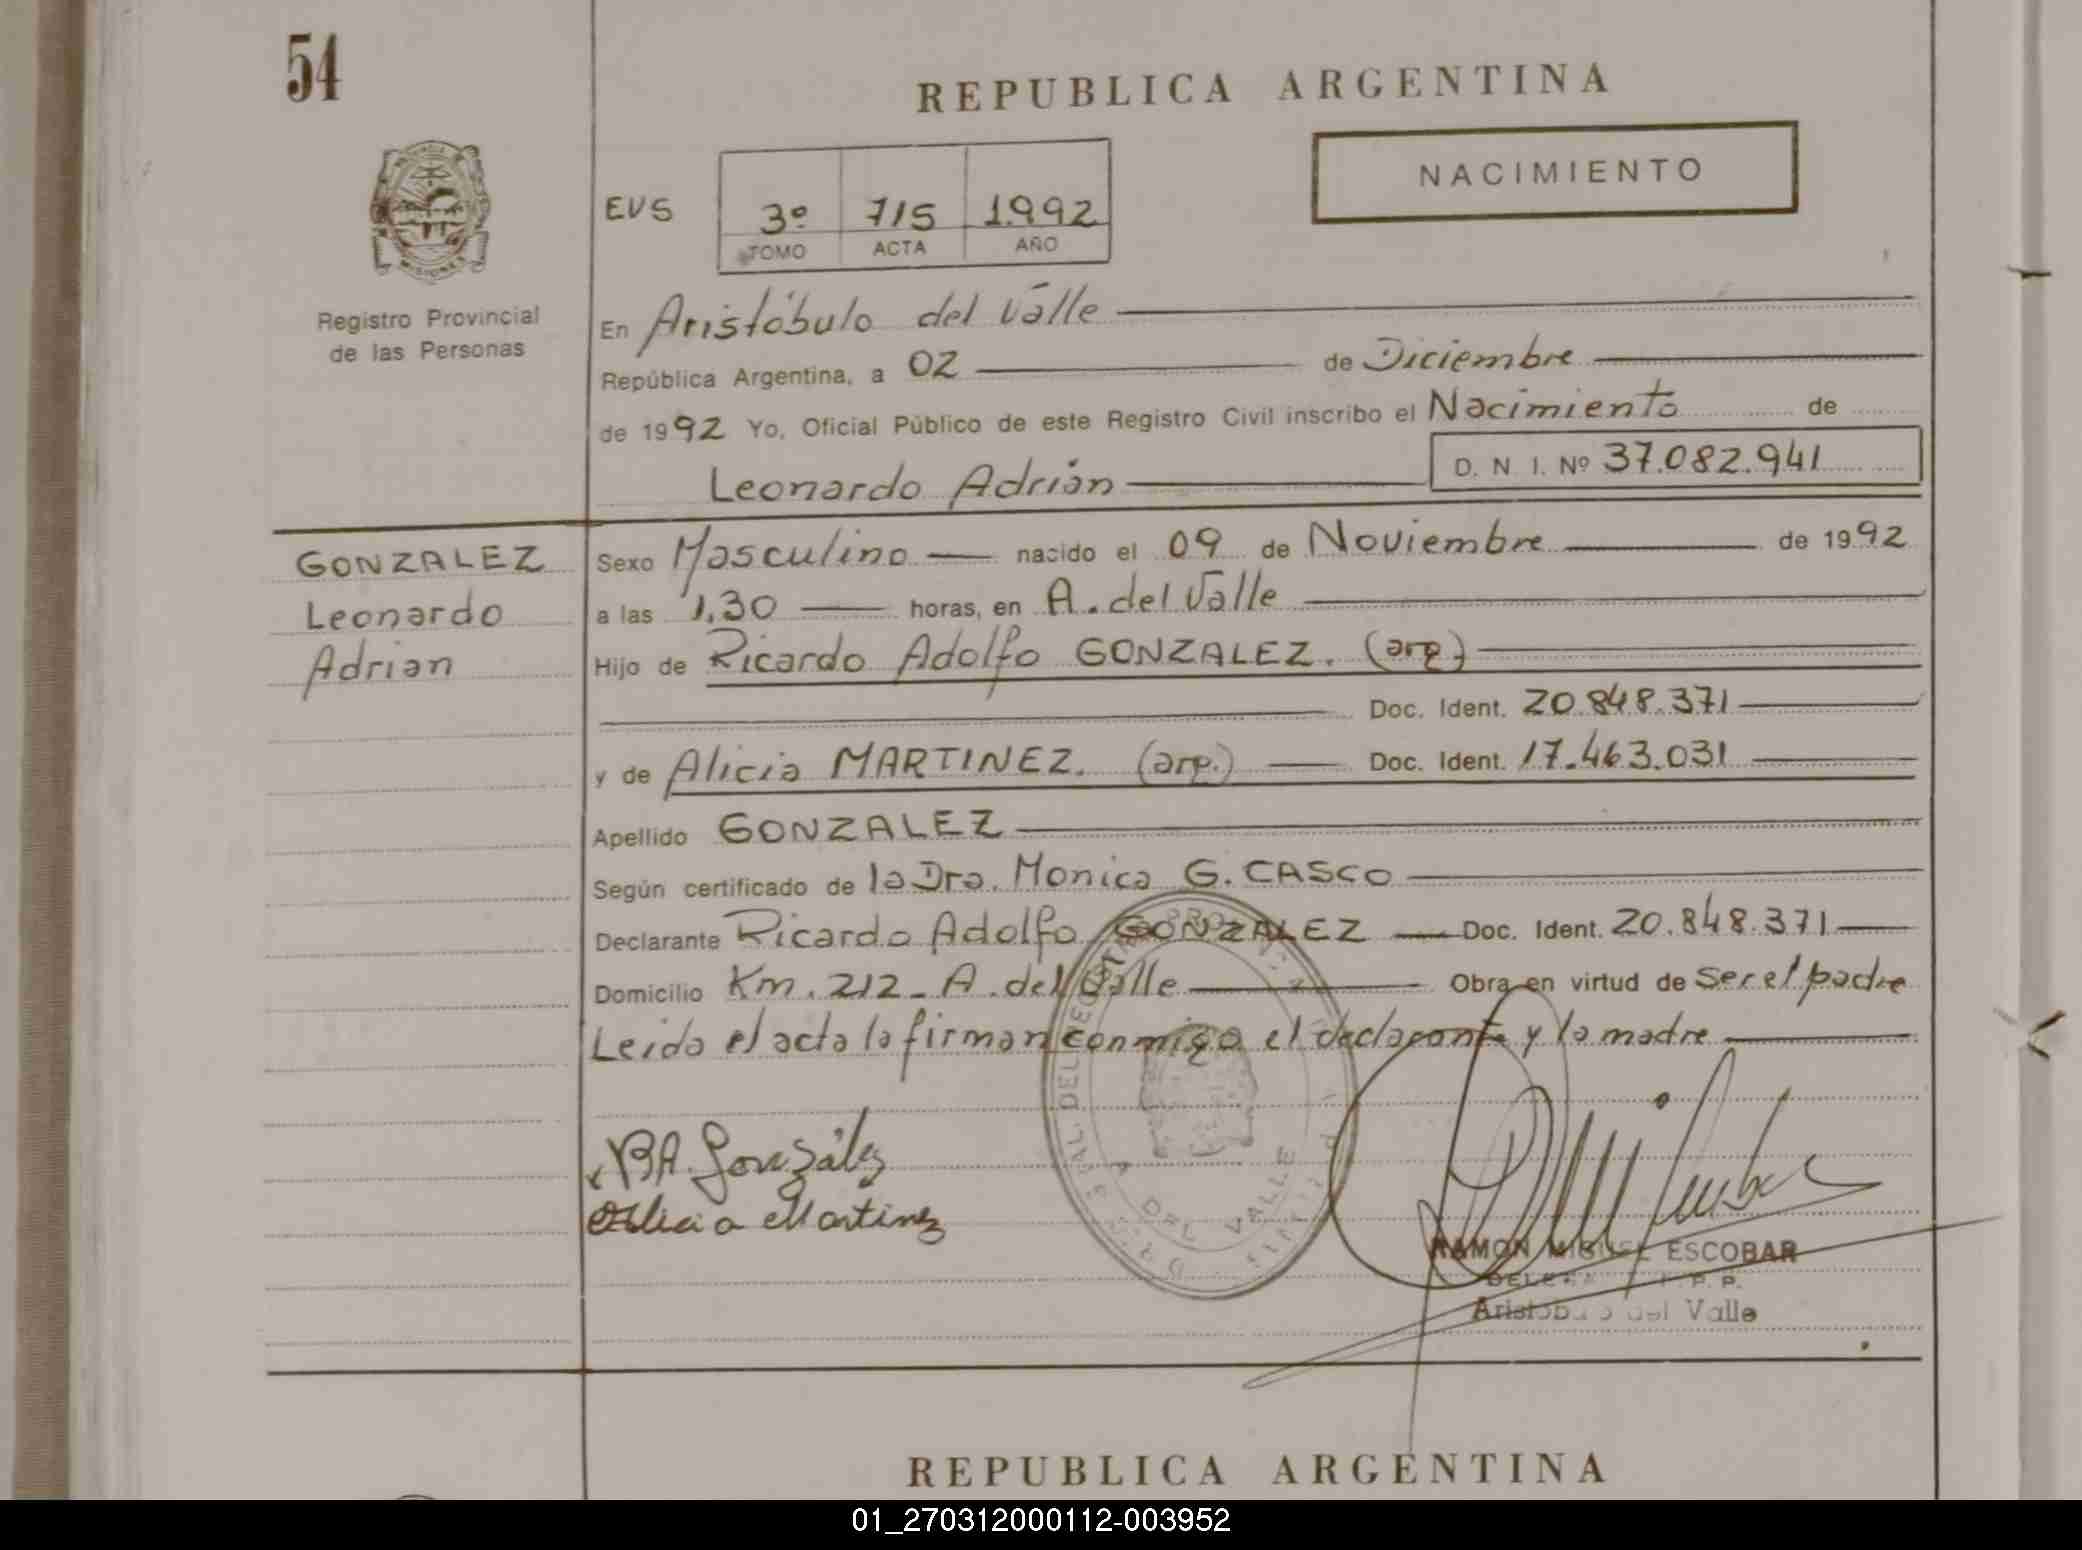 54
REPUBLICA ARGENTINA
NACIMIENTO
EVS 3º 715 1.992
TOMO ACTA AÑO
PROVINCIA
MISIONES
Registro Provincial
de las Personas
En Aristóbulo del Valle
República Argentina, a 02 de Diciembre
de 1992 Yo, Oficial Público de este Registro Civil inscribo el Nacimiento de
Leonardo Adrián D. N. I. Nº 37.082.941
GONZALEZ
Leonardo
Adrian
Sexo Masculino nacido el 09 de Noviembre de 1992
a las 1,30 horas, en A. del Valle
Hijo de Ricardo Adolfo GONZALEZ. (arg)
Doc. Ident. 20.848.371
y de Alicia MARTINEZ. (arg.) Doc. Ident. 17.463.031
Apellido GONZALEZ
Según certificado de la Dra. Monica G. CASCO
Declarante Ricardo Adolfo GONZALEZ Doc. Ident. 20.848.371
Domicilio Km. 212 - A. del Valle Obra en virtud de Ser el padre
Leida el acta la firman conmigo el declarante y la madre
González
Alicia Martinez
A DEL VALLE
RAMON MIGUEL ESCOBAR
Aristobulo del Valle
REPUBLICA ARGENTINA
01_270312000112-003952